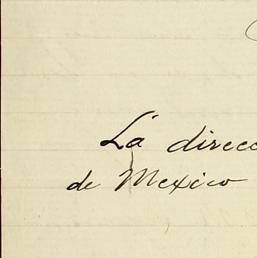 La direcc
de Mexico